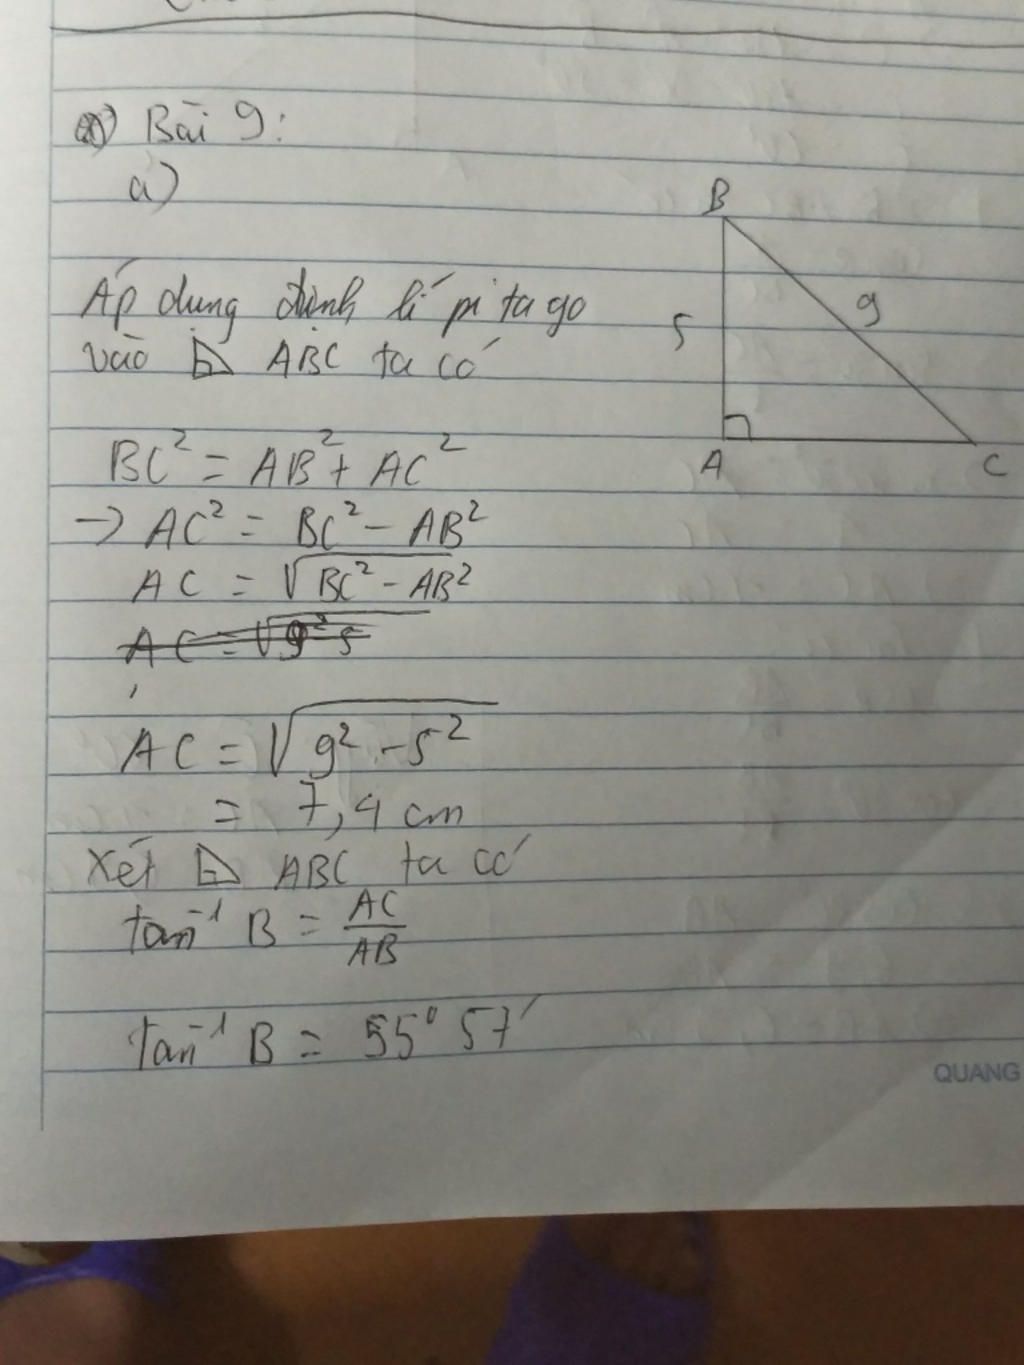 Bài 9:
a)
B
9
5
A
C
Áp dụng định lí pi ta go
vào ABC ta có
BC² = AB² + AC²
→ AC² = BC² - AB²
AC = √BC² - AB²
AC = √9² 5
AC = √9² - 5²
= 7,4 cm
Xét ABC ta có
tan⁻¹ B = AC/AB
tan⁻¹ B = 55° 57'
QUANG